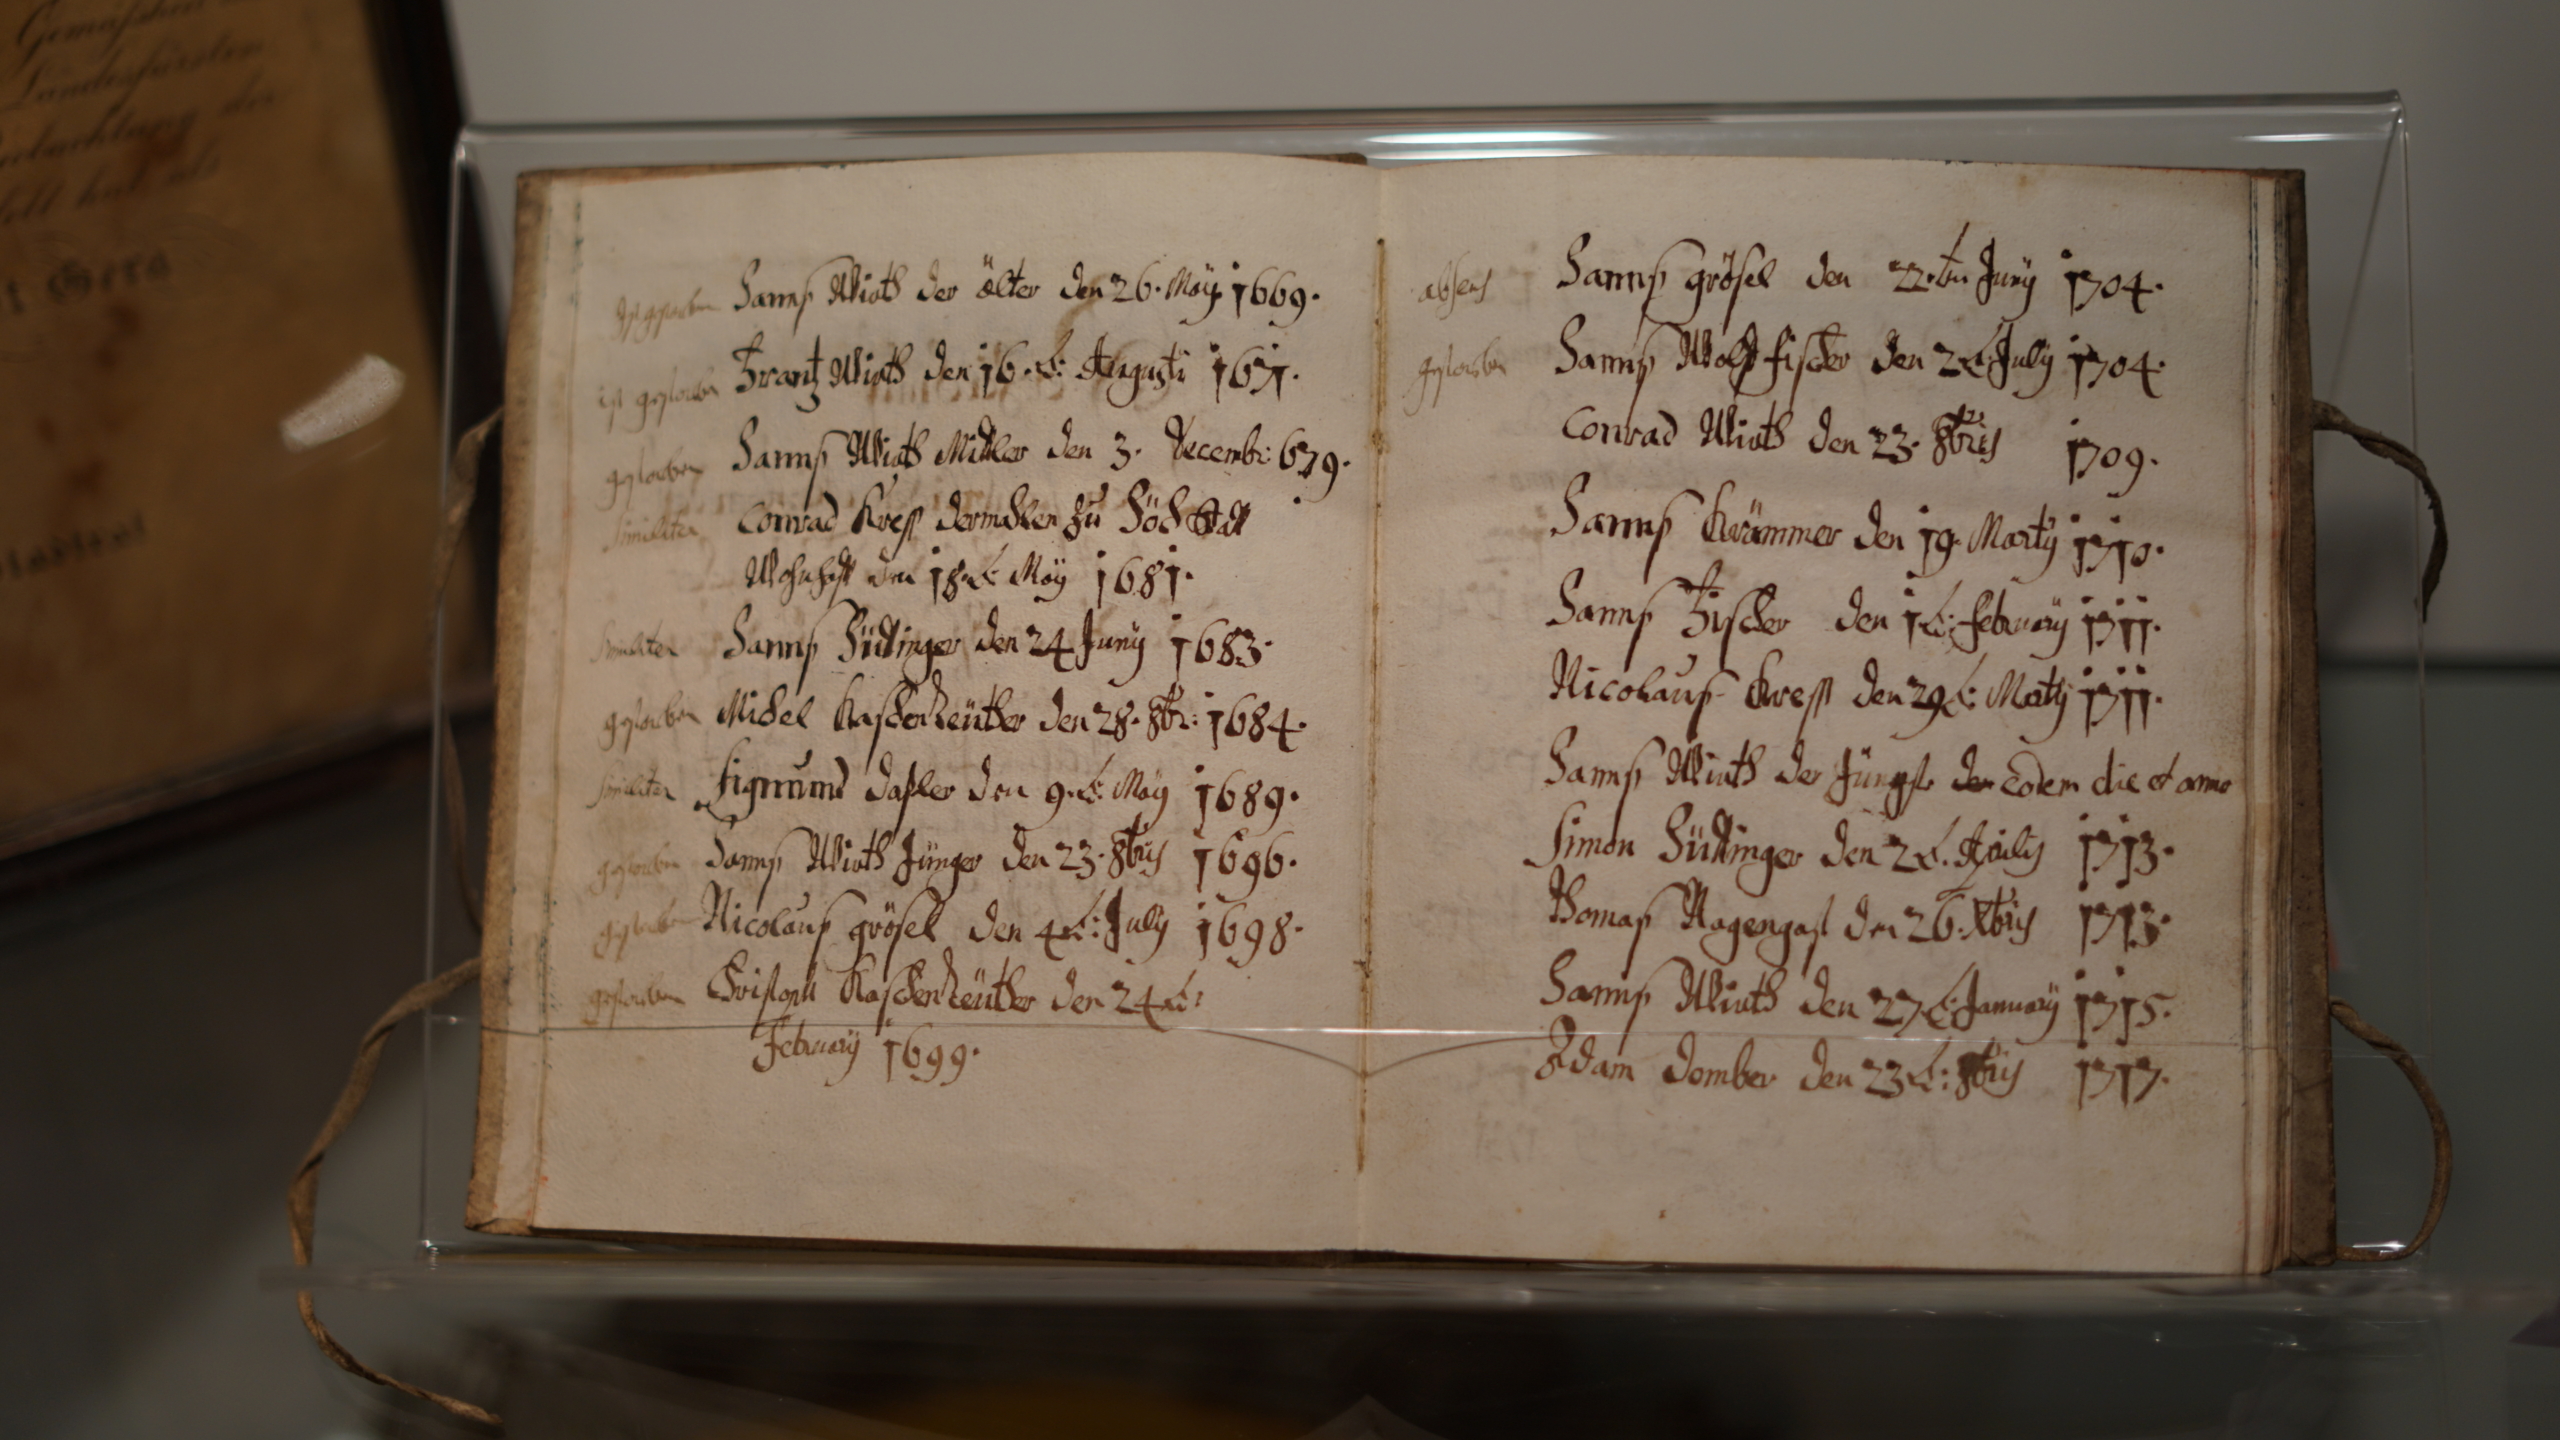 Gemäßheit
Landesfürsten
Beobachtung der
hat als
Gera
ist gestorben Hannß Wirth der älter den 26. Maÿ 1669.
ist gestorben Frantz Wirth den 16. t: Augusti 1671.
gestorben Hannß Wirth Müller den 3. Decembr: 679.
similiter Conrad Kreß dermahlen zu Höchstatt
Wohnhafft den 18. t: Maÿ 1681.
similiter Hannß Büttinger den 24 Junÿ 1683.
gestorben Michel den 28. 8br: 1684.
similiter Sigmund daßler den 9. t: Maÿ 1689.
gestorben Hannß Wirth Jünger den 23. 8bris 1696.
gestorben Nicolauß grösel den 4t: Julÿ 1698.
gestorben Christoph den 24t:
Februarÿ 1699.
absens Hannß grösel den 22.ten Junÿ 1704.
gestorben Hannß Wolff fischer den 2t. Julÿ 1704.
Conrad Wirth den 23. 8bris 1709.
Hannß Krämmer den 19. Martÿ 1710.
Hannß Fischer den 1t: februarÿ 1711.
Nicolauß Kreß den 29t: Martÿ 1711.
Hannß Wirth der Jüngste den eodem die et anno
Simon Büttinger den 2t. Aprilis 1713.
Thomaß Nagengast den 26. Xbris 1713.
Hannß Wirth den 27t: Januarÿ 1715.
Adam Domber den 23t: 8bris 1717.